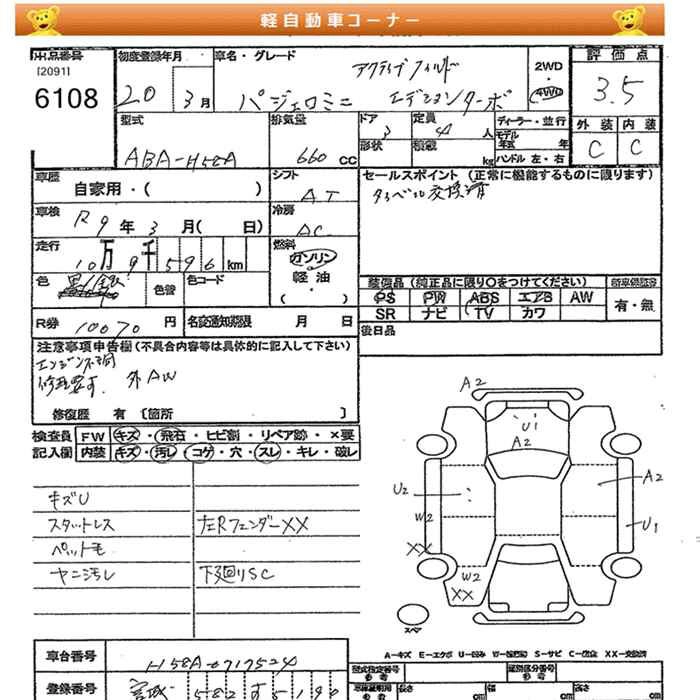 軽自動車コーナー
出品番号
[2091]
6108
初度登録年月
20年 3月
車名・グレード
パジェロミニ
アクティブフィールド
エディションターボ
2WD
・
4WD
評価点
3.5
外装 内装
C C
型式
ABA-H58A
排気量
660 CC
ドア
3
形状
定員
4 人
積載
kg
ディーラー・並行
モデル年式 年
ハンドル 左・右
車歴
自家用・( )
シフト
AT
セールスポイント (正常に機能するものに限ります)
タイベル交換済
車検
R9年 3月( 日)
冷房
AC
走行
10万9千596km
燃料
ガソリン
軽油
( ・ )
色
色替
色コード
装備品 (純正品に限り○をつけてください)
PS PW ABS エアB AW
SR ナビ TV カワ
新車保証書
有・無
R券 10070円
名変通知期限 月 日
後日品
注意事項申告欄 (不具合内容等は具体的に記入して下さい)
エンジン不調
修理要す. 外AW
修復歴 有 [箇所 ]
検査員記入欄
FW キズ・飛石・ヒビ割・リペア跡・×要
内装 キズ・汚レ・コゲ・穴・スレ・キレ・破レ
キズU
スタットレス
左RフェンダーXX
ペット毛
ヤニ汚レ
下廻りSC
A2
U1
A2
U2
A2
W2
U1
XX
W2
XX
スペア
A-キズ E-エクボ U-凹み W-補修跡 S-サビ C-腐食 XX-交換済
車台番号
H58A-0717524
型式指定番号
参考
類別区分番号
参考
登録番号
宮城 582 す 5190
長さ cm
幅 cm
高さ cm